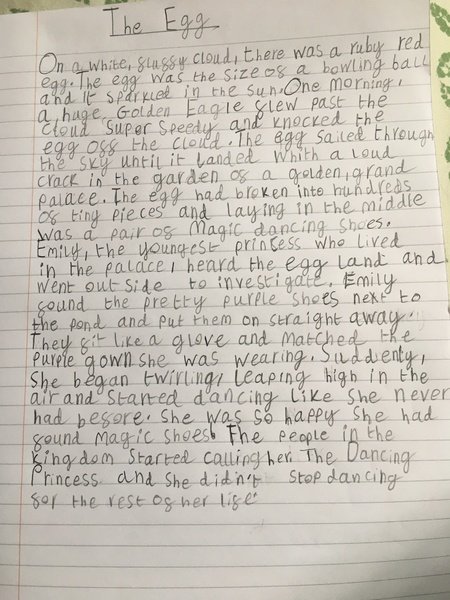 The Egg
On a white, fluffy cloud, there was a ruby red
egg. The egg was the size of a bowling ball
and it sparkled in the sun. One morning,
a huge Golden Eagle flew past the
cloud super speedy and knocked the
egg off the cloud. The egg sailed through
the sky until it landed whith a loud
crack in the garden of a golden, grand
palace. The egg had broken into hundreds
of tiny pieces and laying in the middle
was a pair of Magic dancing shoes.
Emily, the youngest princess who lived
in the palace, heard the egg land and
went out side to investigate. Emily
found the pretty purple shoes next to
the pond and put them on straight away.
They fit like a glove and matched the
purple gown she was wearing. Suddenty,
She began twirling, leaping high in the
air and started dancing like she never
had before. She was so happy she had
found magic shoes. The people in the
kingdom started calling her The Dancing
Princess and she didn't stop dancing
for the rest of her life.